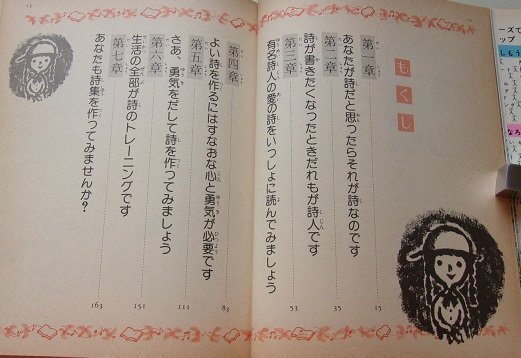 もくじ
第一章
あなたが詩だと思ったらそれが詩なのです 15
第二章
詩が書きたくなったときだれもが詩人です 35
第三章
有名詩人の愛の詩をいっしょに読んでみましょう 53
第四章
よい詩を作るにはすなおな心と勇気が必要です 83
第五章
さあ、勇気をだして詩を作ってみましょう 111
第六章
生活の全部が詩のトレーニングです 151
第七章
あなたも詩集を作ってみませんか? 163